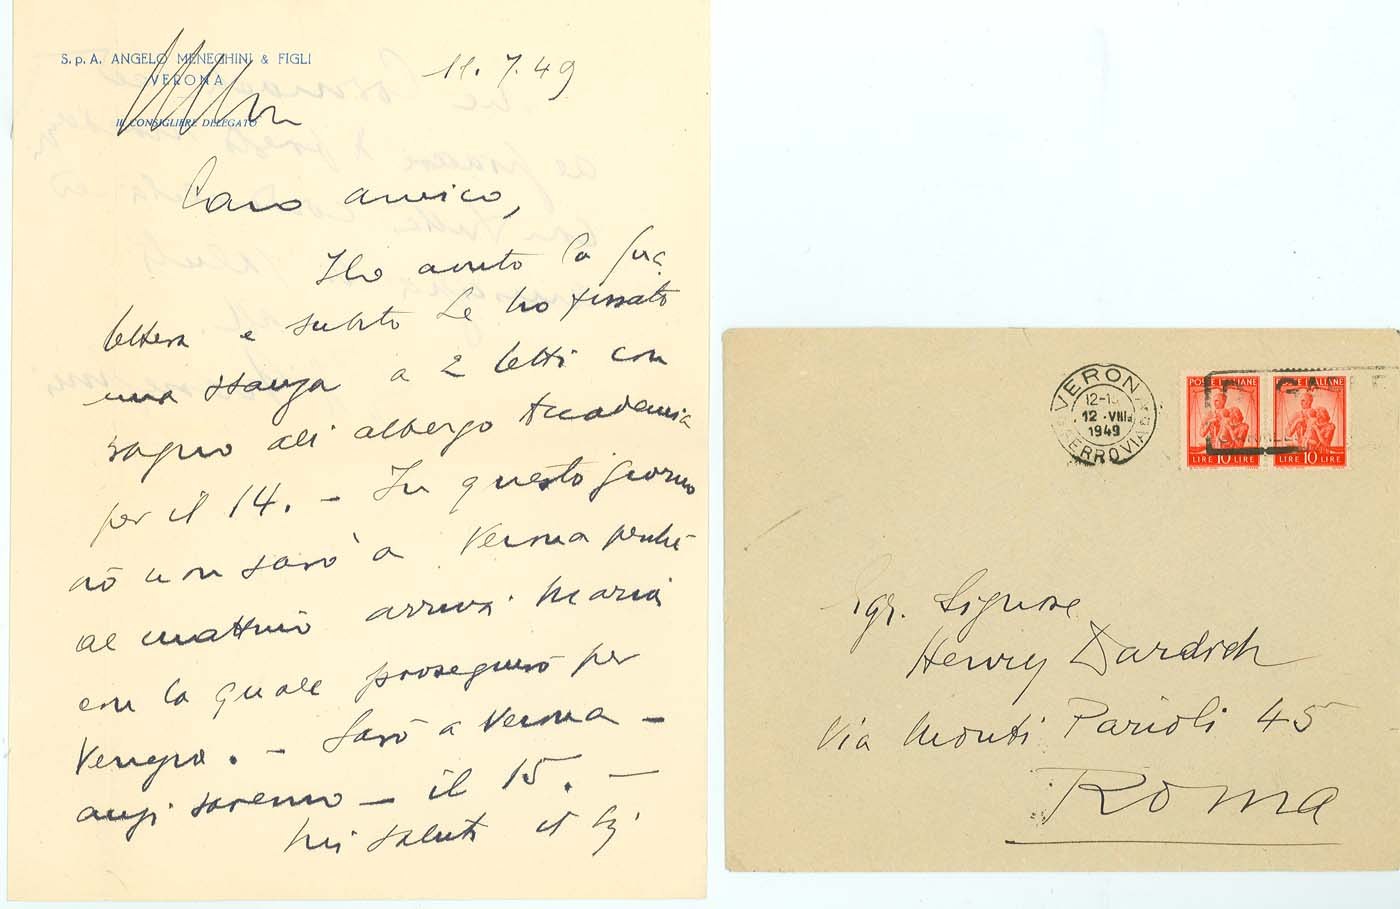 S.p.A. ANGELO MENEGHINI & FIGLI
VERONA
IL CONSIGLIERE DELEGATO
11.7.49
Caro amico,
Ho avuto la sua
lettera e subito Le ho fissato
una stanza a 2 letti con
bagno all' albergo Accademia
per il 14. - In questo giorno
io non sarò a Verona perchè
al mattino arriva Maria
con la quale proseguirò per
Venezia. - Sarò a Verona -
anzi saremo - il 15. -
Mi saluti
VERONA
FERROVIA
12 .VIII
1949
POSTE ITALIANE
LIRE 10 LIRE
POSTE ITALIANE
LIRE 10 LIRE
Egr. Signore
Henry Dardich
Via Monti Parioli 45
Roma